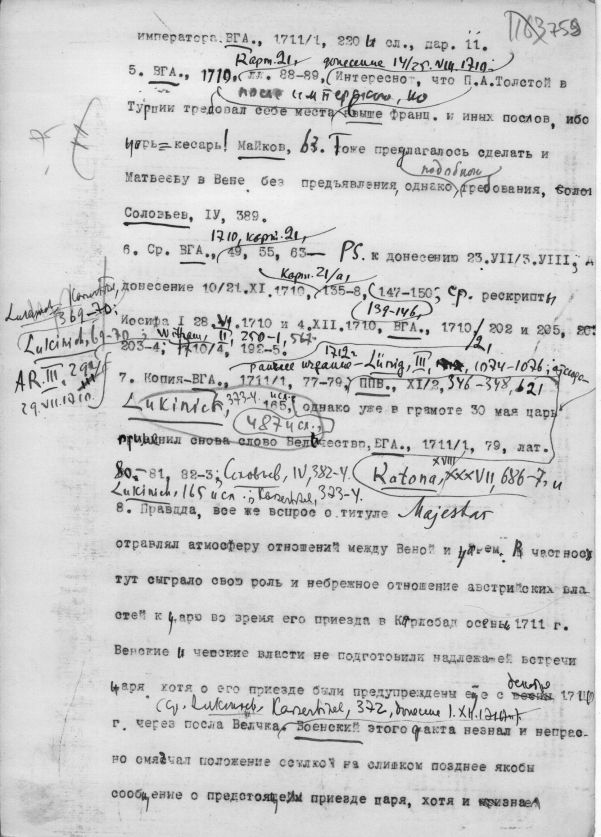 759
императора. ВГА., 1711/1, 220 и сл., пар. ii.
Карт. 21, донесение 14/25.VII.1710.
5. ВГА., 1710, лл. 88-89, Интересно, что П.А.Толстой в
после имперского, но
Турции требовал себе места выше франц. и иных послов, ибо
царь=кесарь! Майков, 63. Тоже предлагалось сделать и
подобного
Матвееву в Вене без предъявления, однако, требования,
Соловьев, IV, 389.
1710, карт. 21,
6. Ср. ВГА., 49, 55, 63— PS. к донесению 23.VII/3.VIII;
Карт. 21/a,
донесение 10/21.XI.1710, 135-8, (147-150; Ср. рескрипты
139-146,
Иосифа I 28.VI.1710 и 4.XII.1710, ВГА., 1710/ 202 и 205,
Lukinich, 69-70; III, 250-1, 562.
203-4; 1710/4, 192-5.
369-70.
AR. III, 292
29.VII.1710
1712 г.
раннее издание - Lünig, III, 1074-1076;
7. Копия-ВГА., 1711/1, 77-79, ППВ., XI/2, 346-348, 621
Lukinich, 373-4. и сл. 165, однако уже в грамоте 30 мая царь
487 и сл.,
применил снова слово Величество, ВГА., 1711/1, 79, лат.
80-81, 82-3; Соловьев, IV, 382-4. Katona, XXXVII, 686-7. и
XVIII
Lukinich, 165 и сл.; 373-4.
8. Правда, все же вопрос о титуле Majestät
отравлял атмосферу отношений между Веной и царем. В частнос
тут сыграло свою роль и небрежное отношение австрийских вла
стей к царю во время его приезда в Карлсбад осенью 1711 г.
Венские и чешские власти не подготовили надлежащей встречи
декабря
царя, хотя о его приезде были предупреждены еще с весны 1710
(ср. Lukinich, 372, донесение 1.XII.1710 г.
г. через посла Велчка. Военский этого факта незнал и непрас-
но смягчал положение ссылкой на слишком позднее якобы
сообщение о предстоящем приезде царя, хотя и признает